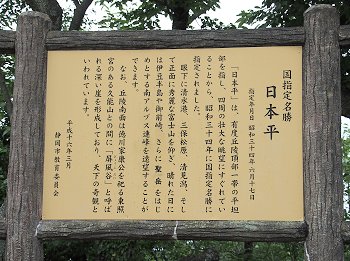 国指定名勝
日本平
指定年月日 昭和三十四年六月十七日
「日本平」は、有度丘陵頂部一帯の平坦
部を指し、四周の壮大な眺望にすぐれてい
ることから、昭和三十四年に国指定名勝に
指定されました。
眼下に清水港、三保松原、清見潟、そし
て正面に秀麗な富士山を仰ぎ、晴れた日に
は伊豆半島や御前崎、さらに聖岳をはじ
めとする南アルプス連峰を遠望することが
できます。
なお、丘陵南面は徳川家康公を祀る東照
宮のある久能山との間に「屏風谷」と呼ば
れる深い崖を形成しており、天下の奇観と
いわれています。
平成十六年三月
静岡市教育委員会